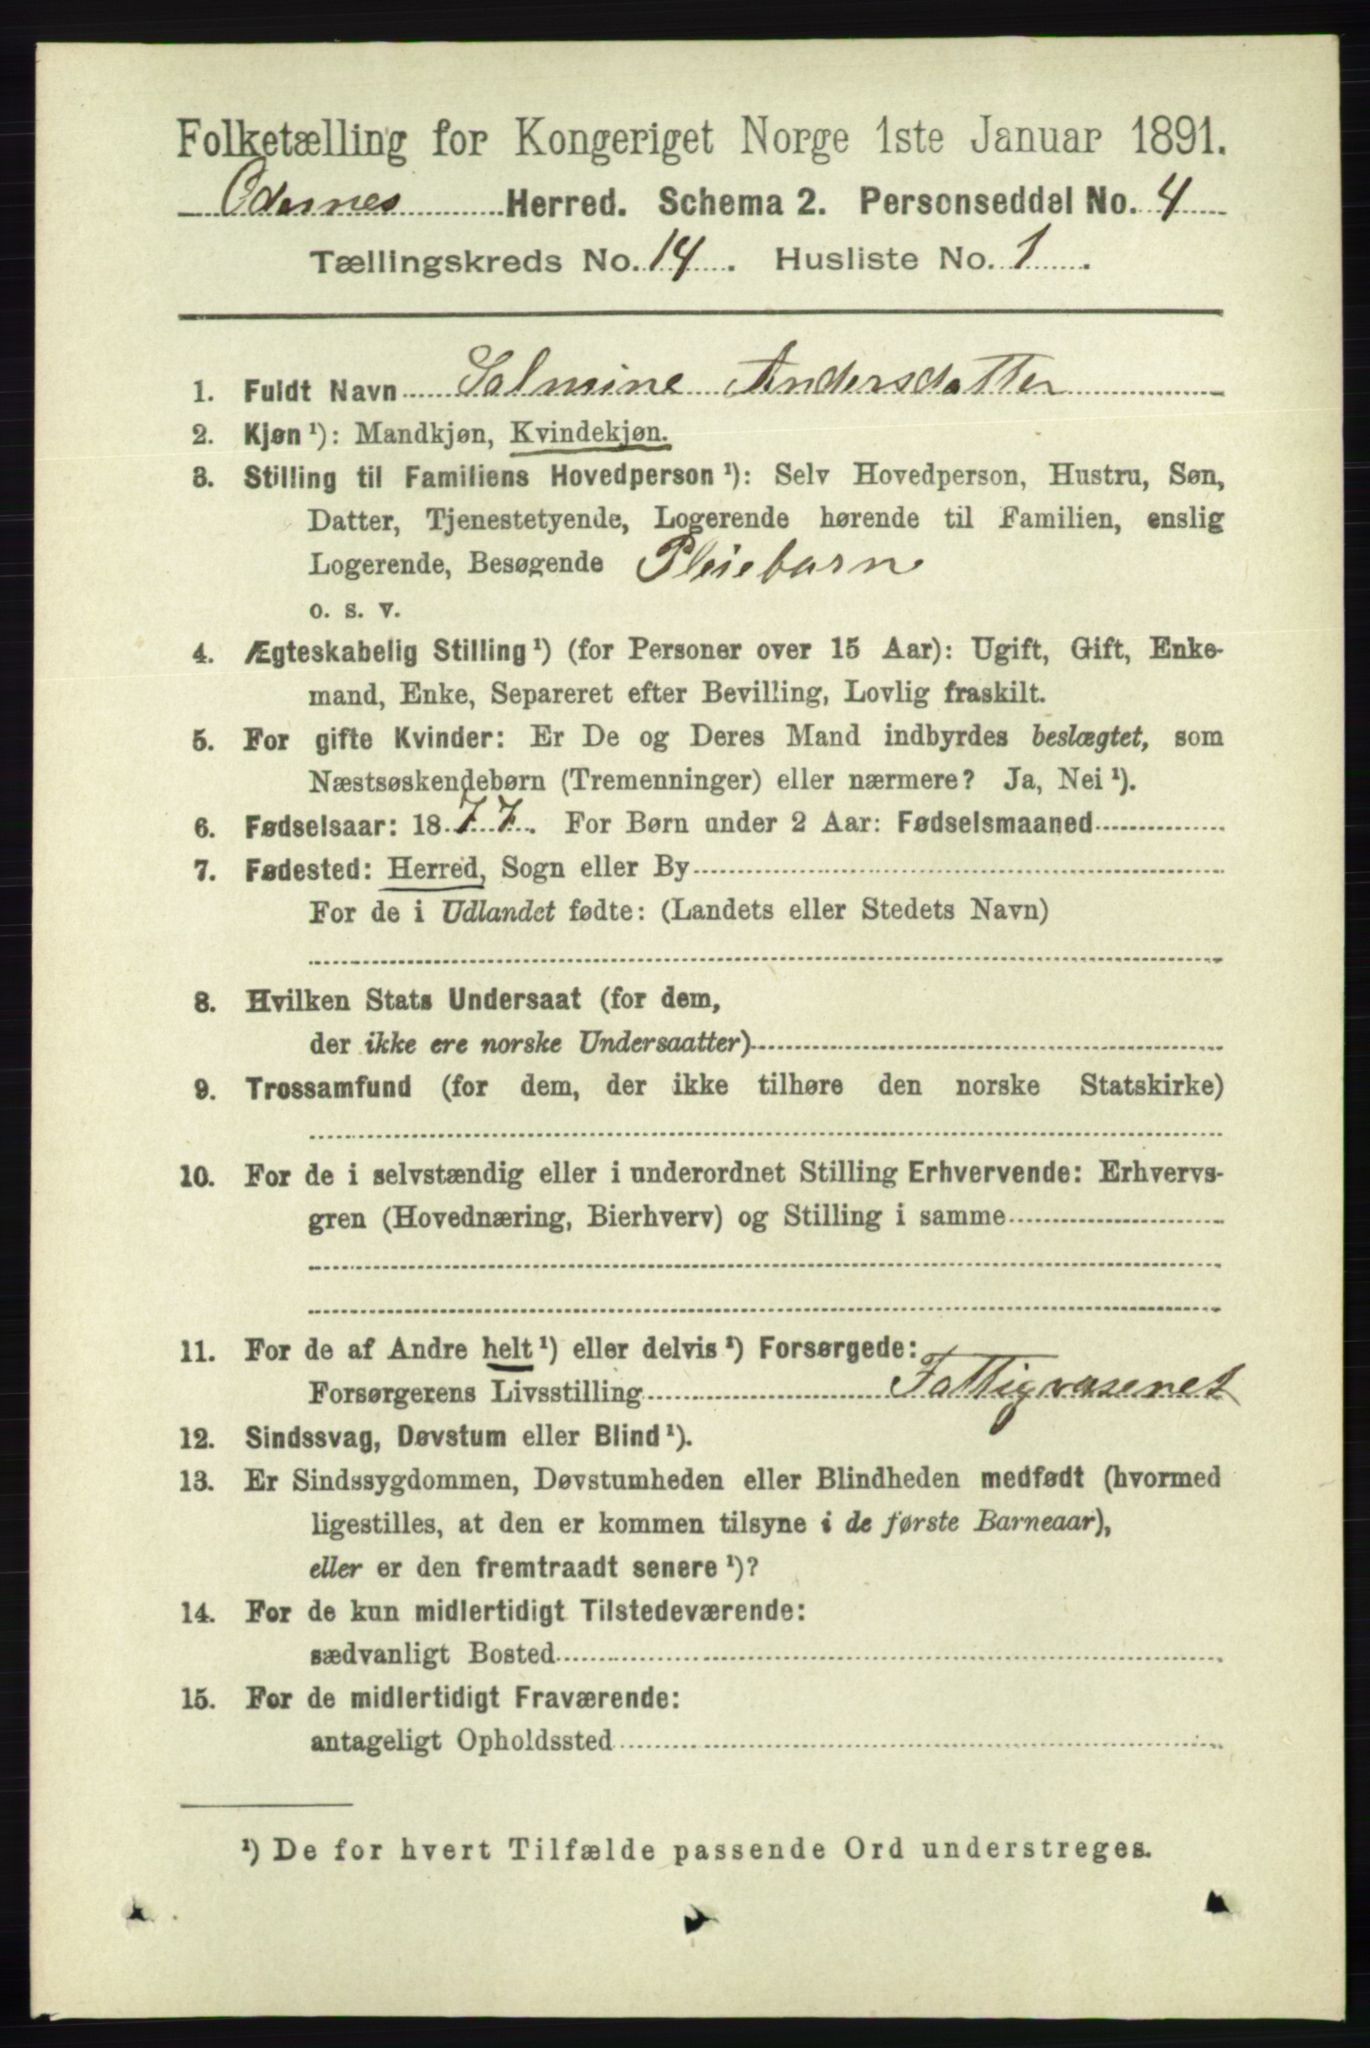 Folketælling for Kongeriget Norge 1ste Januar 1891.
Odernes Herred. Schema 2. Personseddel No. 4
Tællingskreds No. 14. Husliste No. 1.
1. Fuldt Navn Salmine Andersdatter
2. Kjøn ¹): Mandkjøn, Kvindekjøn.
3. Stilling til Familiens Hovedperson ¹): Selv Hovedperson, Hustru, Søn,
Datter, Tjenestetyende, Logerende hørende til Familien, enslig
Logerende, Besøgende Pleiebarn
o. s. v.
4. Ægteskabelig Stilling ¹) (for Personer over 15 Aar): Ugift, Gift, Enke-
mand, Enke, Separeret efter Bevilling, Lovlig fraskilt.
5. For gifte Kvinder: Er De og Deres Mand indbyrdes beslægtet, som
Næstsøskendebørn (Tremenninger) eller nærmere? Ja, Nei ¹).
6. Fødselsaar: 1877. For Børn under 2 Aar: Fødselsmaaned
7. Fødested: Herred, Sogn eller By
For de i Udlandet fødte: (Landets eller Stedets Navn)
8. Hvilken Stats Undersaat (for dem,
der ikke ere norske Undersaatter)
9. Trossamfund (for dem, der ikke tilhøre den norske Statskirke)
10. For de i selvstændig eller i underordnet Stilling Erhvervende: Erhvervs-
gren (Hovednæring, Bierhverv) og Stilling i samme
11. For de af Andre helt ¹) eller delvis ¹) Forsørgede:
Forsørgerens Livsstilling Fattigvæsenet
12. Sindssvag, Døvstum eller Blind ¹).
13. Er Sindssygdommen, Døvstumheden eller Blindheden medfødt (hvormed
ligestilles, at den er kommen tilsyne i de første Barneaar),
eller er den fremtraadt senere ¹)?
14. For de kun midlertidigt Tilstedeværende:
sædvanligt Bosted
15. For de midlertidigt Fraværende:
antageligt Opholdssted
¹) De for hvert Tilfælde passende Ord understreges.